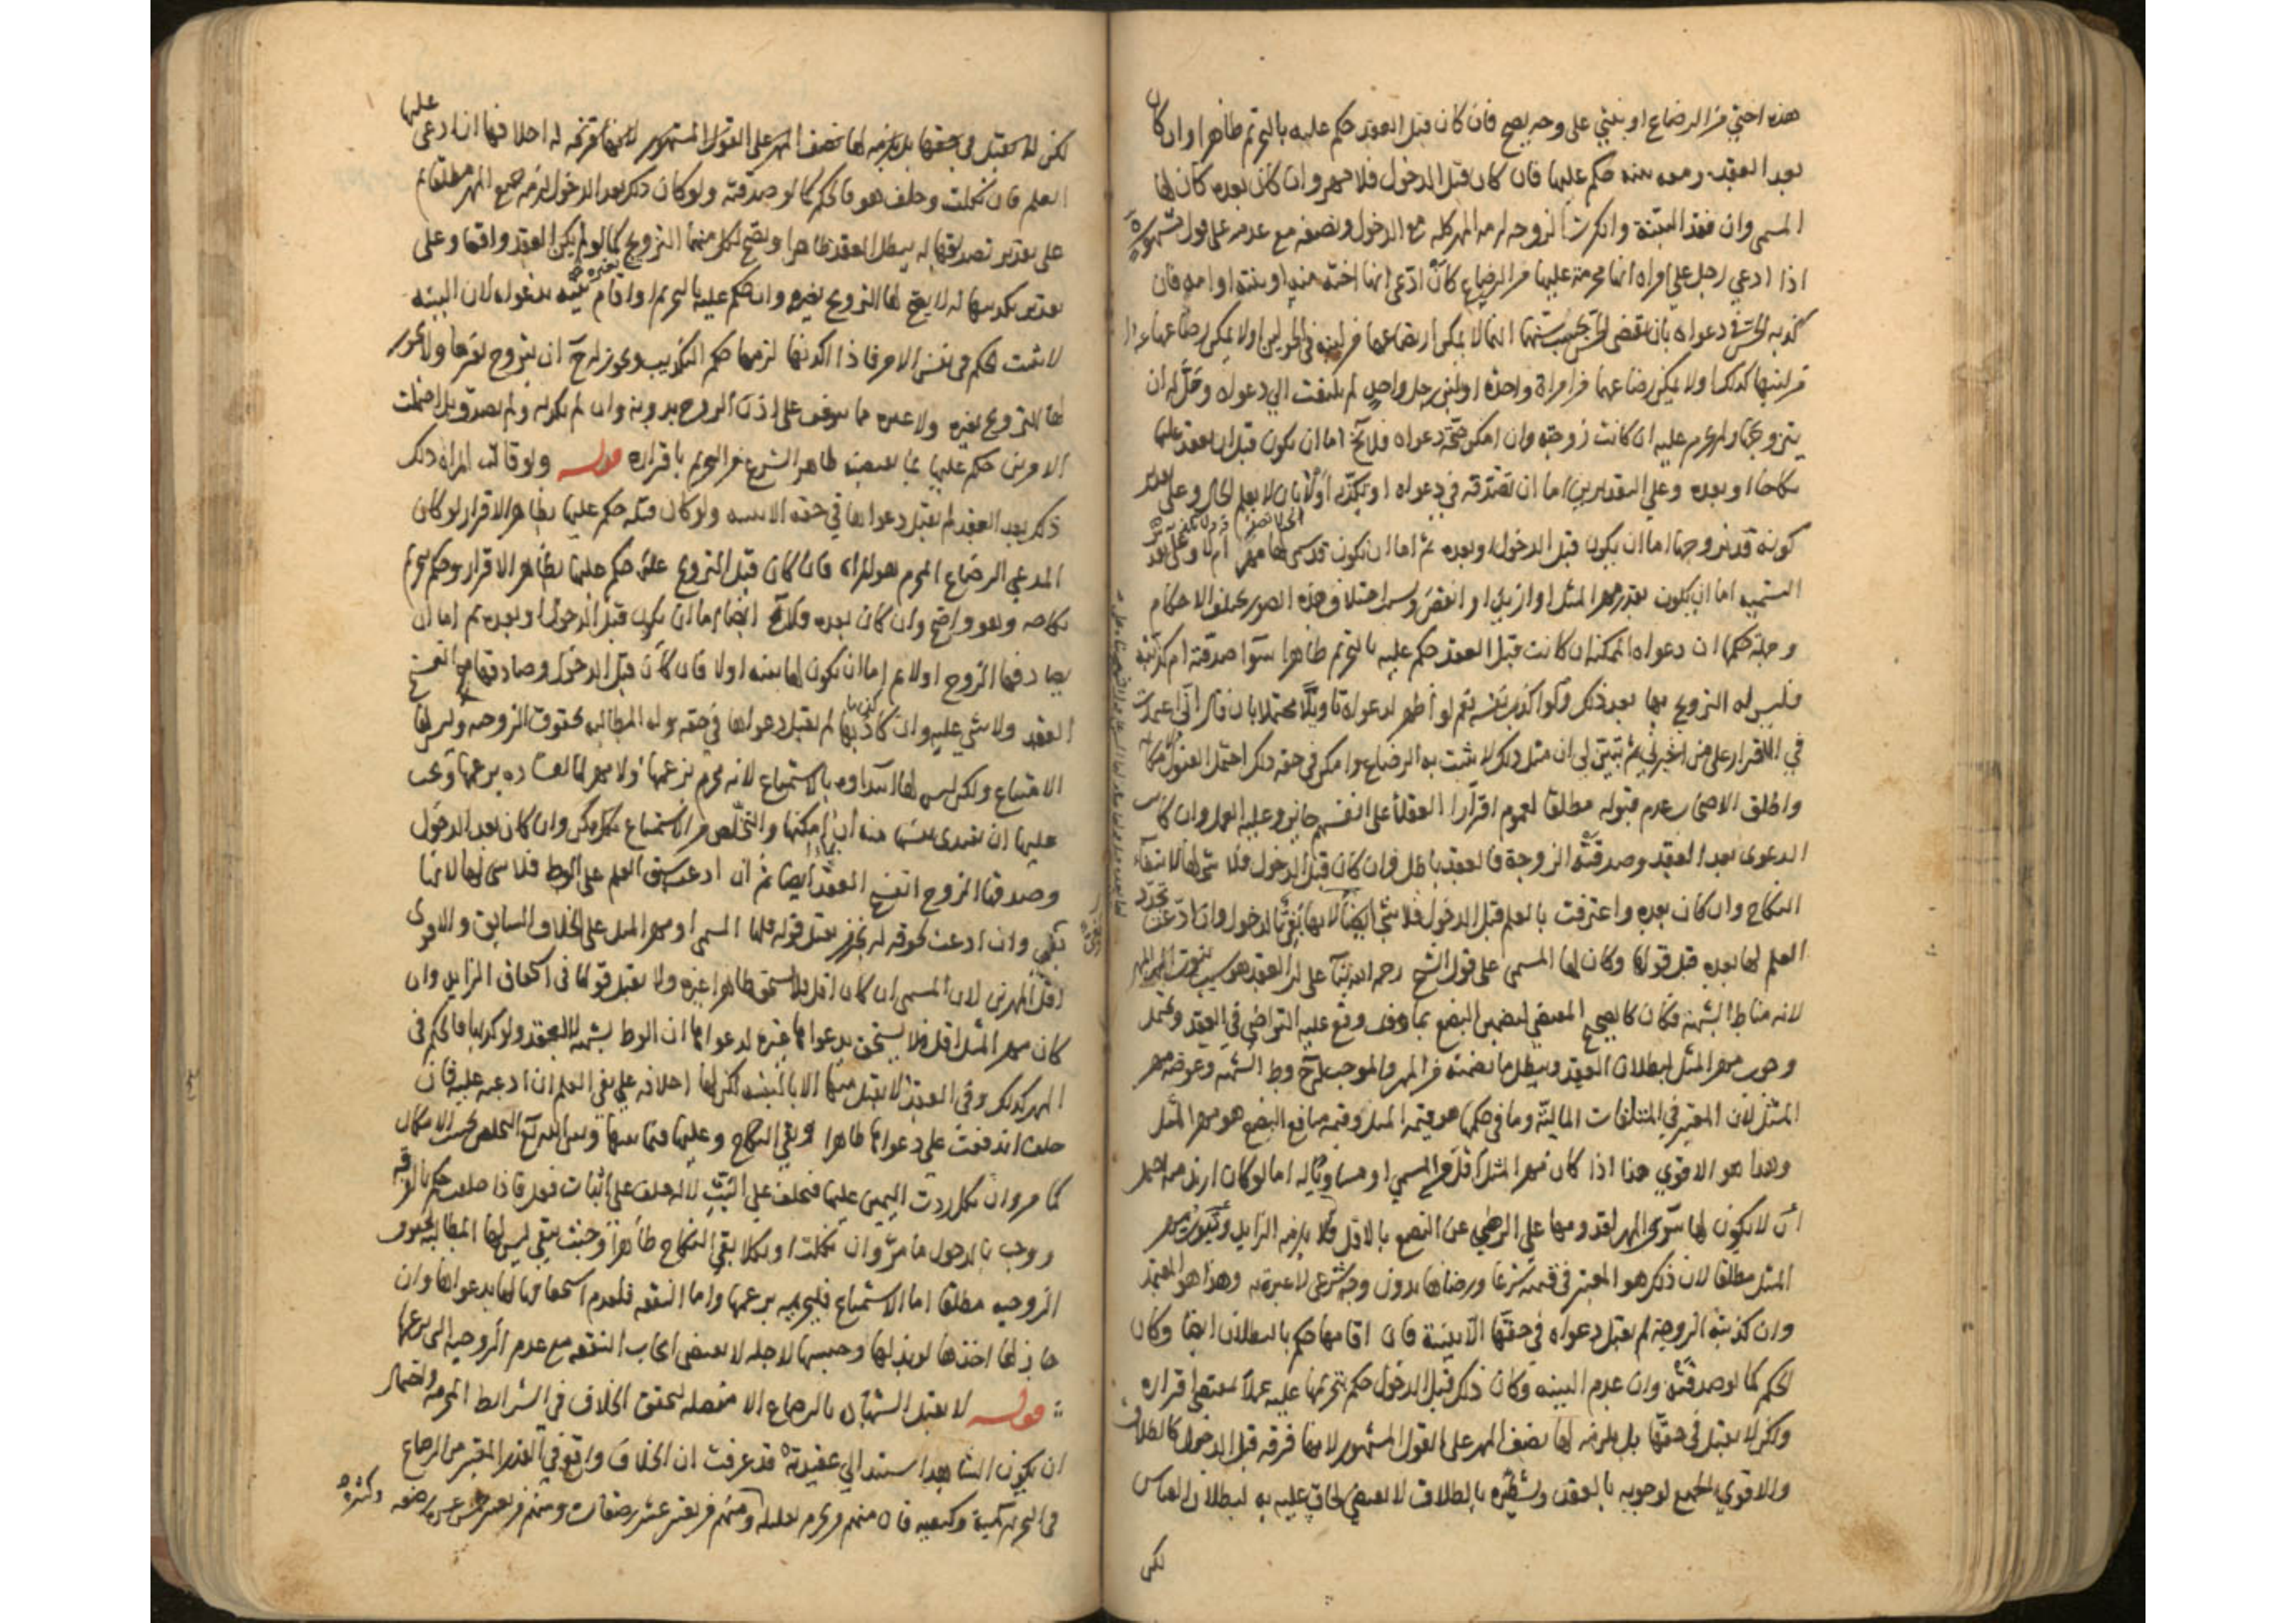 هذه اختي من الرضاع او بنتي على وجه يصح فان كان قبل العقد حكم عليه بالتحريم ظاهرا وان كان
بعد العقد ومعه بينه حكم عليها فان كان قبل الدخول فلا مهر وان كان بعده كان لها
المسمى وان فقد البينة وانكرت الزوجه لزمه المهر كله مع الدخول ونصفه مع عدمه على قول مشهور
اذا ادعي رجل علي امراه انها محرمة عليها من الرضاع كان ادعى انها اخته منه او بنته او امه فان
كذبه الحس في دعواه بان يقضى الحس بحسب سنهما انها لا يمكن ارتضاعهما من لبنه في الحولين او لا يمكن رضاعها
من لبنها كذلك او لا يمكن رضاعهما من امراة واحدة او لبن رجل واحد لم يلتفت الي دعواه وحل له ان
يتزوجها ولم يحرم عليه ان كانت زوجته وان امكن صحة دعواه فلا يخ اما ان يكون قبل ان يعقد عليها
نكاحا او بعده وعلي التقديرين اما ان تصدقه في دعواه او تكذبه او لا بان لا يعلم الحال وعلى تقدير
كونه قد تزوجها اما ان يكون قبل الدخول او بعده ثم اما ان يكون قد سمى لها مهرا ام لا وعلى تقدير
التسميه اما ان يكون بقدر مهر المثل او ازيد او انقص وبسبب اختلاف هذه الصور يختلف الاحكام
وجملة حكمها ان دعواه الممكنه ان كانت قبل العقد حكم عليه بالتحريم ظاهرا سوآ صدقته ام كذبته
فليس له التزويج بها بعد ذلك ولو اكذب نفسه نعم لو اظهر لدعواه تاويلا محتملا بان قال اني اعتمدت
في الاقرار على من اخبرني ثم تبين لي ان مثل ذلك لا يثبت به الرضاع وامكن في حقه ذلك احتمل القبول
واطلق الاصحاب عدم قبوله مطلقا لعموم اقرارا العقلا على انفسهم جايز وعليه العمل وان كانت
الدعوى بعد العقد وصدقته الزوجة فالعقد باطل فان كان قبل الدخول فلا شي لها لانتفاء
النكاح وان كان بعده واعترفت بالعلم قبل الدخول فلا شي ايضا لانها بغي بالدخول وان ادعت تجدد
العلم لها بعده قبل قولها وكان لها المسمى على قول الشيخ رحمه الله بنآ على ان العقد هو سبب ثبوت المهر
لانه مناط الشبهة فكان كالصحيح المقتضي لضمان البضع بما وقع عليه التراضي في العقد ويحتمل
وجوب مهر المثل لبطلان العقد ويبطل ما تضمنه من المهر والموجب له ح وط الشبهه وعوضه مهر
المثل لان المعتبر في المتلفات الماليه وما في حكمها هو قيمة المثل وقيمة منافع البضع هو مهر المثل
وهذا هو الاقوي هذا اذا كان مهر المثل اقل من المسمي او مساويا له اما لو كان ازيد منه احتمل
ان لا يكون لها سوى المهر لقدومها علي الرضي عن البضع بالاقل فلا يلزمه الزايد وثبوت مهر
المثل مطلقا لان ذلك هو المعتبر في قيمته شرعا ورضاها بدون وجه شرعي لا عبرة به وهذا هو المعتمد
وان كذبته الزوجة لم يقبل دعواه في حقها الا ببينة فان اقامها حكم بالبطلان ايضا وكان
الحكم كما لو صدقته وان عدم البينه وكان ذلك قبل الدخول حكم بتحريمها عليه عملا بمقتضى اقراره
ولكن لا يقبل في حقها بل يلزمه لها نصف المهر على القول المشهور لانها فرقه قبل الدخول كالطلاق
والاقوي الجميع لوجوبه بالعقد وتشطيره بالطلاق لا يقتضي الحاق عليه به لبطلان القياس
لكن
لكن لا يقبل في حقها بل يلزمه لها نصف المهر على القول المشهور لانها فرقه له احلافها ان ادعى عليها
العلم فان نكلت وحلف هو فالحكم كما لو صدقته ولو كان ذلك بعد الدخول لزمه جميع المهر مطلقا ثم
على تقدير تصديقها له يبطل العقد ظاهرا ويصح لكل منهما التزويج كما لو لم يكن العقد واقعا وعلى
تقدير تكذيبها له لا يصح لها التزويج بغيره وان حكم عليه بالتحريم او اقام بينه بدعواه لان البينه
لا تثبت الحكم في نفس الامر فاذا اكذبها لزمها حكم التكذيب ويجوز له ح ان يتزوج بغيرها ولا يجوز
لها التزويج بغيره ولا غيره مما يتوقف على اذن الزوج بدونه وان لم تكذبه ولم تصدق بل احتملت
الامرين حكم عليها بما يقتضيه ظاهر الشرع من التحريم باقراره قوله ولو قالت المراه ذلك
ذلك بعد العقد لم يقبل دعواها في حقه الا ببينه ولو كان قبله حكم عليها بظاهر الاقرار لو كان
المدعي الرضاع المحرم هو المراه فان كان قبل التزويج عليه حكم عليها بظاهر الاقرار وحكم بتحريم
نكاحه وهو واضح وان كان بعده فلا يخ ايضا اما ان يكون قبل الدخول او بعده ثم اما ان
يصادقها الزوج او لا ثم اما ان يكون لها بينه او لا فان كان قبل الدخول وصادقها انفسخ
العقد ولا شي عليه وان كذبها لم يقبل دعواها في حقه وله المطالبه بحقوق الزوجيه وليس لها
الامتناع ولكن ليس لها ابتداوه بالاستمتاع لانه محرم بزعمها ولا مهر لها لفساده بزعمها ويجب
عليها ان تفتدي نفسها منه ان امكنها والتخلص من الاستمتاع بكل ممكن وان كان بعد الدخول
وصدقها الزوج انفسخ العقد ايضا ثم ان ادعت سبق العلم على الوط فلا شي لها لانها
بغي وان ادعت لحوقه له يقبل قوله فلها المسمى او مهر المثل على الخلاف السابق والاقوى
اقل الامرين لان المسمى ان كان اقل فلا تستحق ظاهرا غيره ولا يقبل قولها في استحقاق الزايد وان
كان مهر المثل اقل فلا يستحق بدعواها غيره لدعواها ان الوط بشبهه لا بعقد ولو كذبها فالحكم في
المهر كذلك وفي العقد لا يقبل منها الا بالبينه لكن لها احلافه علي نفي العلم ان ادعته عليه فان
حلف اندفعت على دعواها ظاهرا وبقي النكاح وعليها فيما بينها وبين الله تعالى التخلص بحسب الامكان
كما مر وان نكل ردت اليمين عليها فتحلف علي البت لانه حلف على اثبات فعل فاذا حلفت حكم بالفرقه
ووجب بالدخول ما مر وان نكلت او نكلا بقي النكاح ظاهرا وحيث بقي ليس لها المطالبه بحقوق
الزوجيه مطلقا اما الاستمتاع فلتحريمه بزعمها واما النفقه فلعدم استحقاقها لها بدعواها وان
جاز لها اخذها لو بذلها وحبسها لاجله لا يقتضي ايجاب النفقه مع عدم الزوجيه التي بزعمها
قوله لا يقبل الشهاده بالرضاع الا مفصله لتحقق الخلاف في الشرايط المحرمه واحتمال
ان يكون الشاهد استند الي عقيدته قد عرفت ان الخلاف واقع في القدر المعتبر من الرضاع
في التحريم كمية وكيفيه فان منهم من يحرم بقليله ومنهم من يعتبر عشر رضعات ومنهم من يعتبر خمس عشره رضعه وكثيره